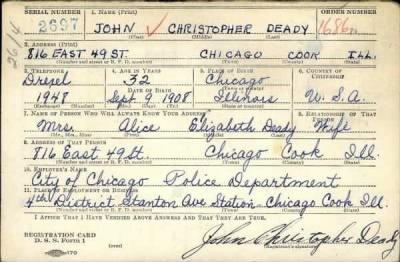 SERIAL NUMBER 1. NAME (Print) ORDER NUMBER
2697 JOHN CHRISTOPHER DEADY 1686
(First) (Middle) (Last)
2614
2. ADDRESS (Print)
816 EAST 49 ST. CHICAGO COOK ILL.
(Number and street or R. F. D. number) (Town) (County) (State)
3. TELEPHONE 4. AGE IN YEARS 5. PLACE OF BIRTH 6. COUNTRY OF CITIZENSHIP
Drexel 32 Chicago
DATE OF BIRTH
1948 Sept. 9 1908 Illinois U.S.A.
(Exchange) (Number) (Mo.) (Day) (Yr.) (State or county)
7. NAME OF PERSON WHO WILL ALWAYS KNOW YOUR ADDRESS RELATIONSHIP OF THAT PERSON
Mrs. Alice Elizabeth Deady Wife
(Mr., Mrs., Miss) (First) (Middle) (Last)
9. ADDRESS OF THAT PERSON
816 East 49 St. Chicago Cook Ill.
(Number and street or R. F. D. number) (Town) (County) (State)
10. EMPLOYER'S NAME
City of Chicago Police Department
11. PLACE OF EMPLOYMENT OR BUSINESS
4th District Stanton Ave Station - Chicago Cook Ill.
(Number and street or R. F. D. number) (Town) (County) (State)
I AFFIRM THAT I HAVE VERIFIED ABOVE ANSWERS AND THAT THEY ARE TRUE.
REGISTRATION CARD
D. S. S. Form 1
John Christopher Deady
(Registrant's signature)